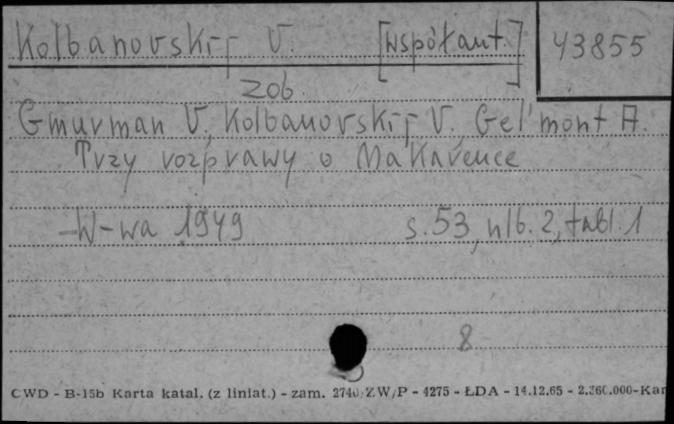 Kolbanovskij V. [współaut.] 43855
zob.
Gmurman V., Kolbanovskij V. Gel'mont A.
Trzy rozprawy o Makarence
W-wa 1949 s. 53, nlb. 2, tabl. 1
8
CWD - B-15b Karta katal. (z liniat.) - zam. 2740/ZW/P - 4275 - ŁDA - 14.12.65 - 2.360.000-Kar